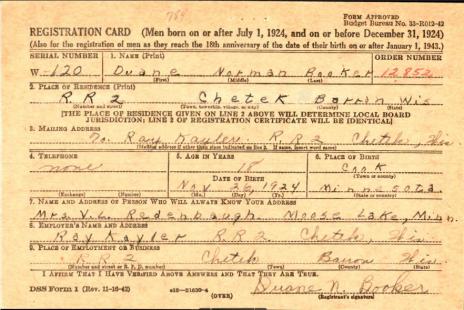 784
FORM APPROVED
Budget Bureau No. 33-R012-42
REGISTRATION CARD (Men born on or after July 1, 1924, and on or before December 31, 1924)
(Also for the registration of men as they reach the 18th anniversary of the date of their birth on or after January 1, 1943.)
SERIAL NUMBER 1. NAME (Print) ORDER NUMBER
W-120 Duane Norman Booker 12852
(First) (Middle) (Last)
2. PLACE OF RESIDENCE (Print)
R R 2 Chetek Barron Wis
(Number and street) (Town, township, village, or city) (County) (State)
[THE PLACE OF RESIDENCE GIVEN ON LINE 2 ABOVE WILL DETERMINE LOCAL BOARD
JURISDICTION; LINE 2 OF REGISTRATION CERTIFICATE WILL BE IDENTICAL]
3. MAILING ADDRESS
Ray Kayler R.R. 2 Chetek, Wis.
[Mailing address if other than place indicated on line 2. If same, insert word same]
4. TELEPHONE 5. AGE IN YEARS 6. PLACE OF BIRTH
none 18 Cook
DATE OF BIRTH (Town or county)
Nov 26, 1924 Minnesota
(Exchange) (Number) (Mo.) (Day) (Yr.) (State or country)
7. NAME AND ADDRESS OF PERSON WHO WILL ALWAYS KNOW YOUR ADDRESS
Mrs. V. L. Redenbaugh Moose Lake, Minn.
8. EMPLOYER'S NAME AND ADDRESS
Ray Kayler R.R. 2 Chetek, Wis.
9. PLACE OF EMPLOYMENT OR BUSINESS
R.R. 2 Chetek Barron Wis.
(Number and street or R. F. D. number) (Town) (County) (State)
I AFFIRM THAT I HAVE VERIFIED ABOVE ANSWERS AND THAT THEY ARE TRUE.
DSS Form 1 (Rev. 11-16-42) (OVER) Duane N. Booker
(Registrant's signature)